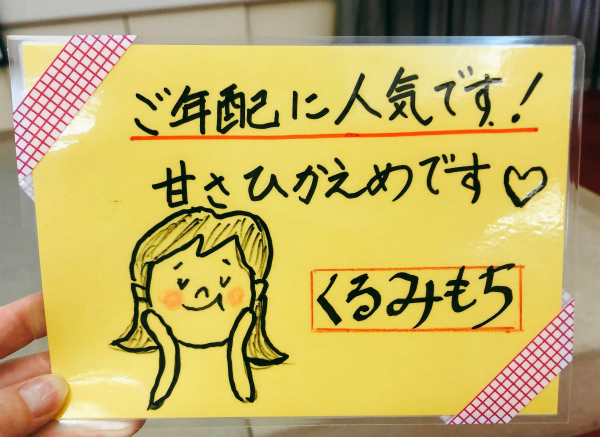 ご年配に人気です!
甘さひかえめです♡
くるみもち